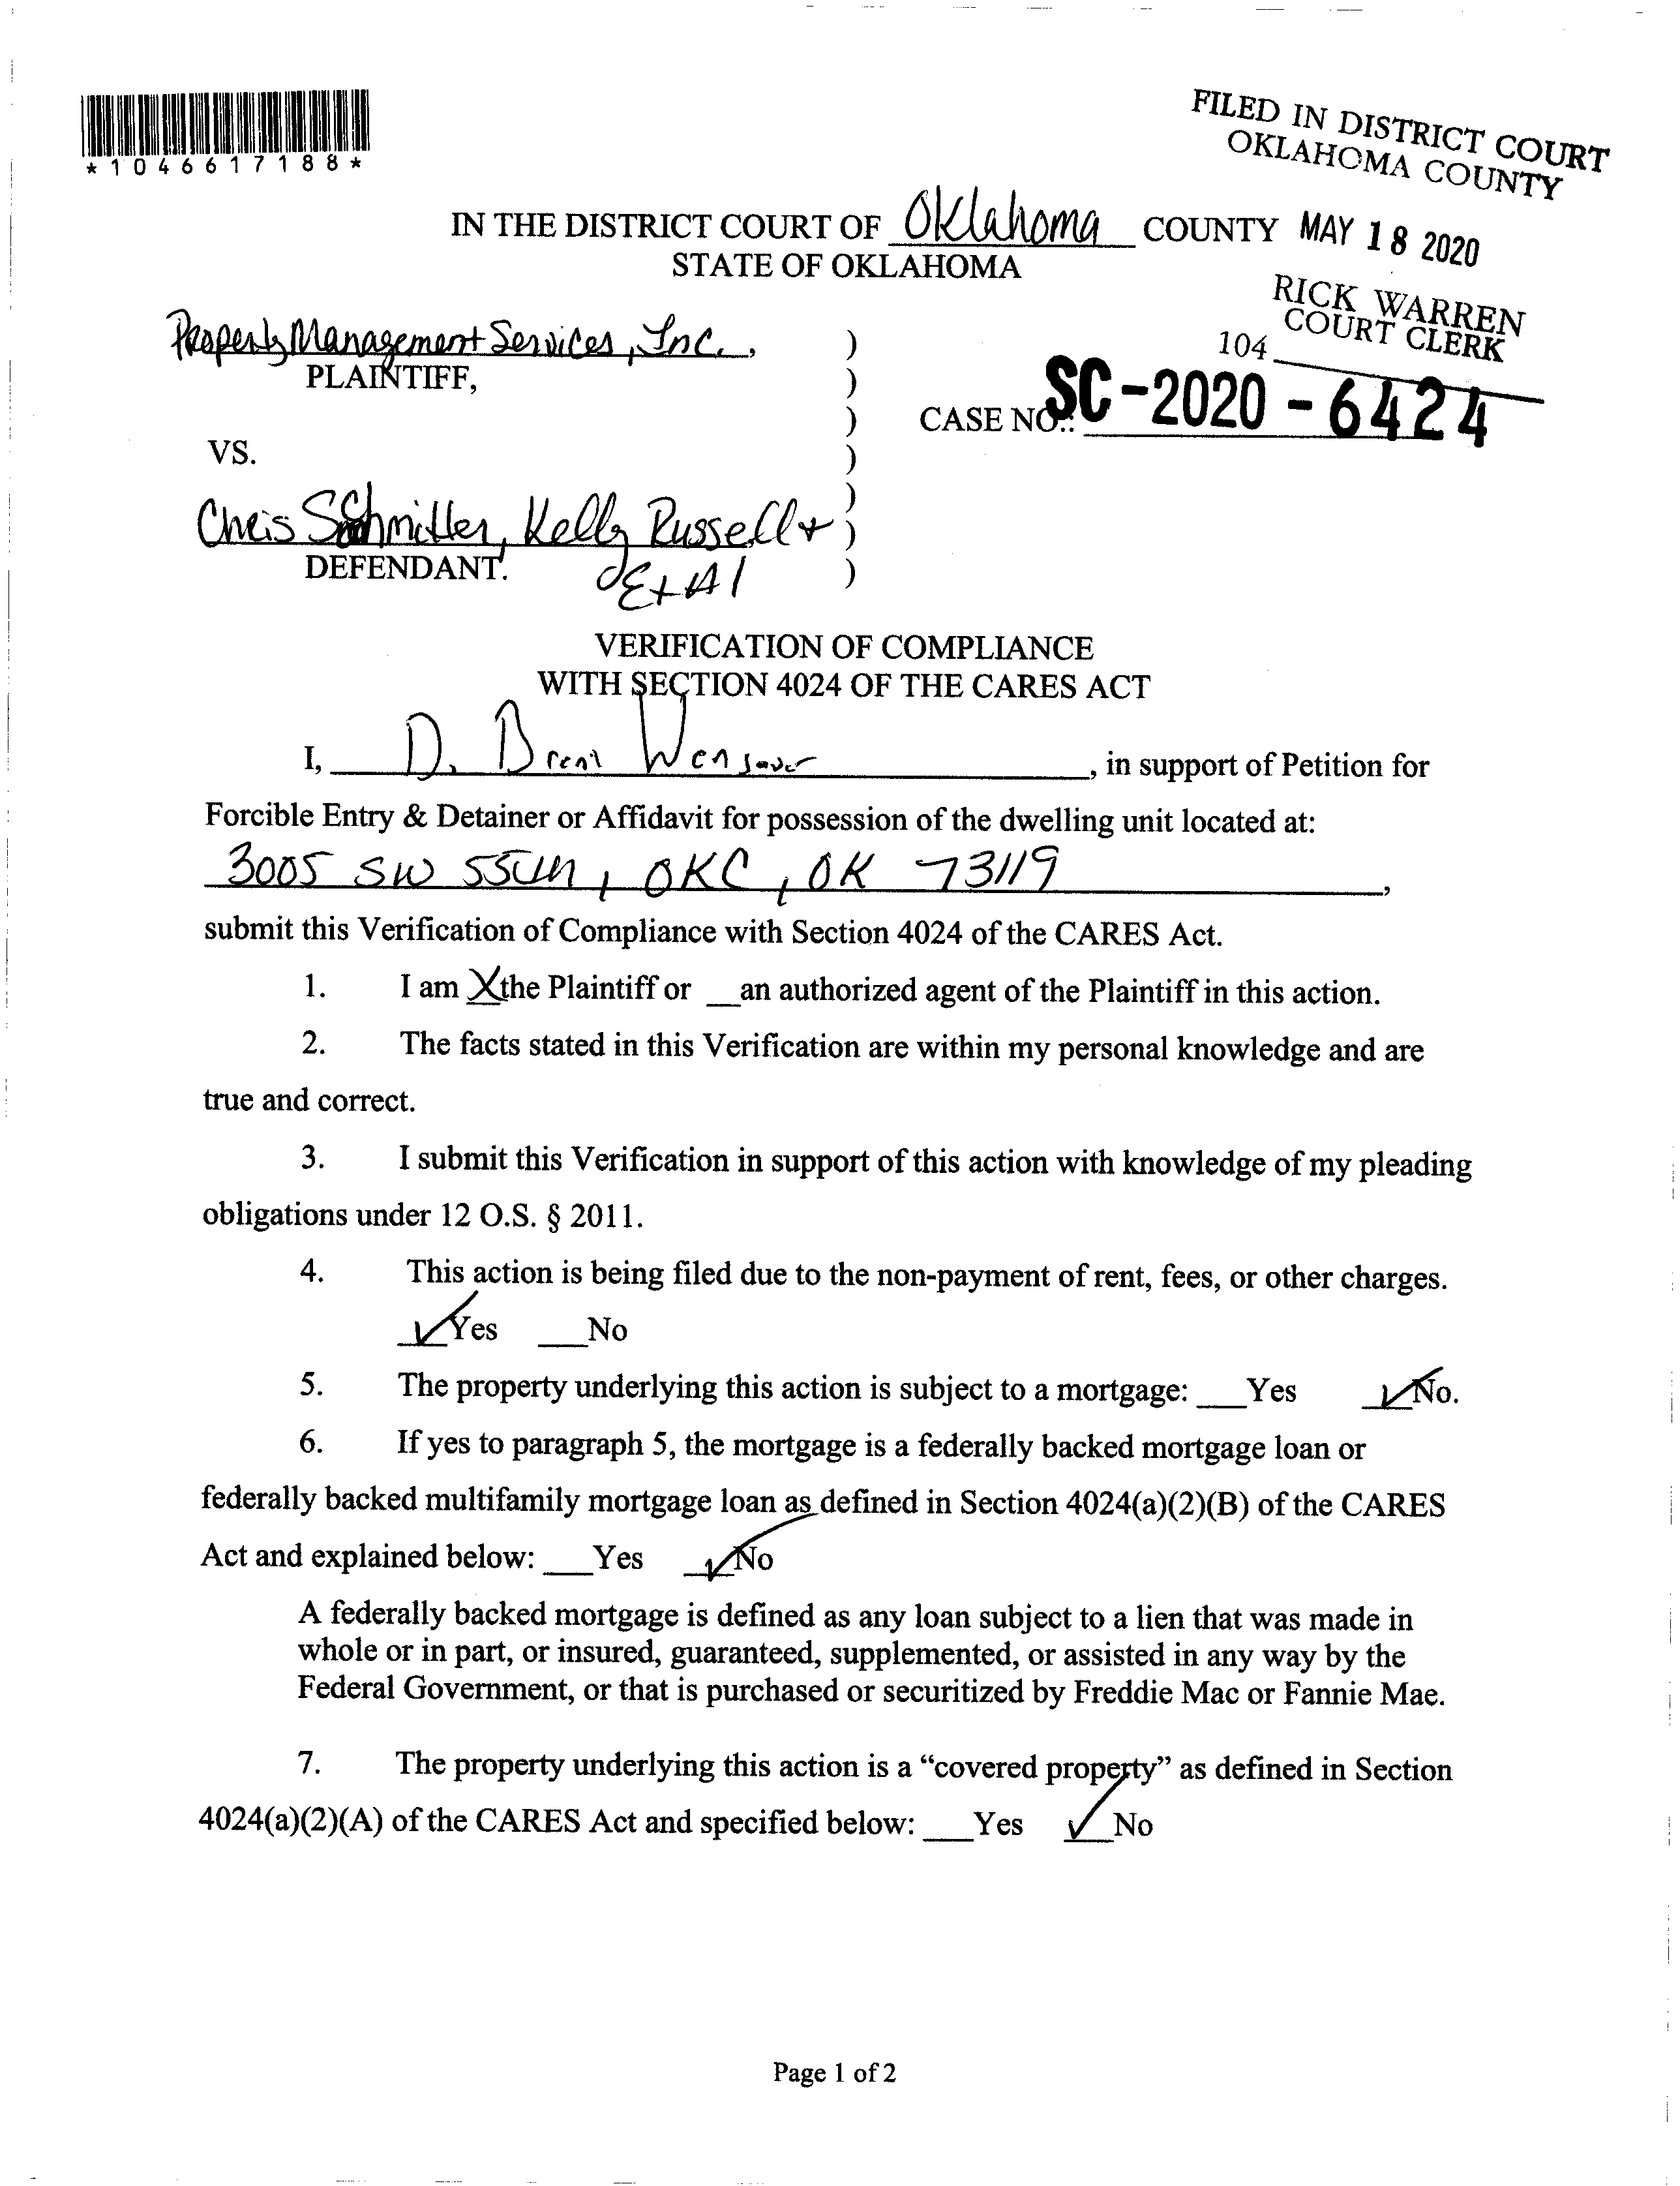 *1046617188*
FILED IN DISTRICT COURT
OKLAHOMA COUNTY
IN THE DISTRICT COURT OF Oklahoma COUNTY MAY 18 2020
STATE OF OKLAHOMA
RICK WARREN
COURT CLERK
104
Property Management Services, Inc., )
PLAINTIFF, )
)
CASE NO.: SC-2020-6424
VS. )
)
Chris Schmitter, Kelly Russell + )
DEFENDANT. Et Al )
VERIFICATION OF COMPLIANCE
WITH SECTION 4024 OF THE CARES ACT
I, D. Brent , in support of Petition for
Forcible Entry & Detainer or Affidavit for possession of the dwelling unit located at:
3005 SW 55th, OKC, OK 73119,
submit this Verification of Compliance with Section 4024 of the CARES Act.
1. I am X the Plaintiff or __an authorized agent of the Plaintiff in this action.
2. The facts stated in this Verification are within my personal knowledge and are
true and correct.
3. I submit this Verification in support of this action with knowledge of my pleading
obligations under 12 O.S. § 2011.
4. This action is being filed due to the non-payment of rent, fees, or other charges.
✓Yes ___No
5. The property underlying this action is subject to a mortgage: ___Yes ✓No.
6. If yes to paragraph 5, the mortgage is a federally backed mortgage loan or
federally backed multifamily mortgage loan as defined in Section 4024(a)(2)(B) of the CARES
Act and explained below: ___Yes ✓No
A federally backed mortgage is defined as any loan subject to a lien that was made in
whole or in part, or insured, guaranteed, supplemented, or assisted in any way by the
Federal Government, or that is purchased or securitized by Freddie Mac or Fannie Mae.
7. The property underlying this action is a “covered property” as defined in Section
4024(a)(2)(A) of the CARES Act and specified below: ___Yes ✓No
Page 1 of 2